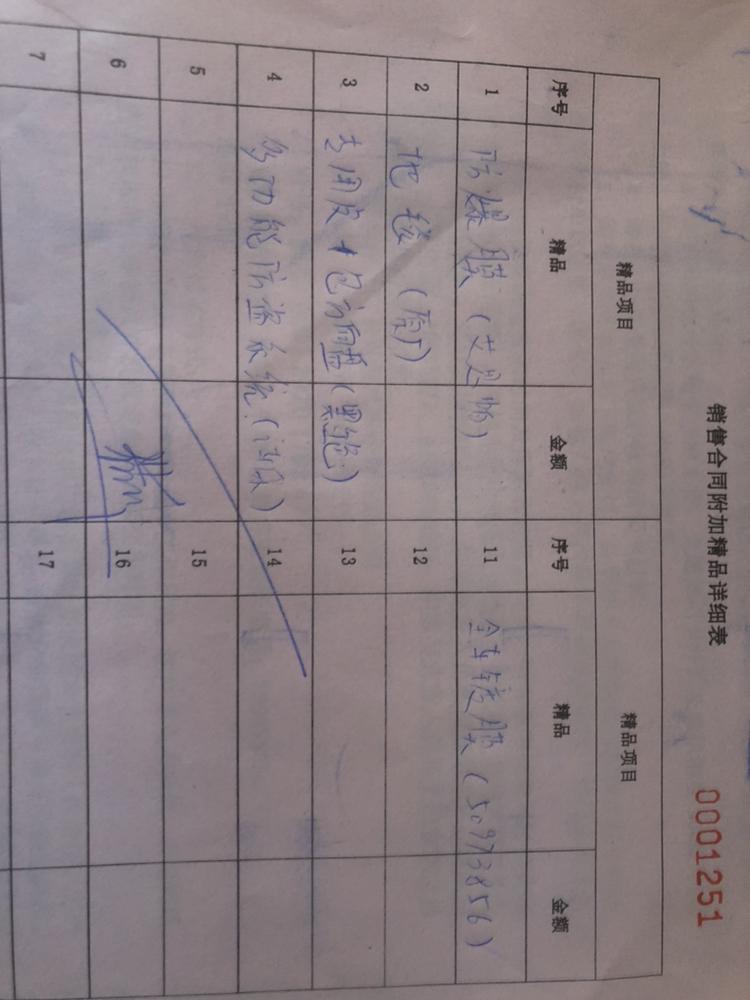 销售合同附加精品详细表
0001251
精品项目 精品项目
序号 精品 金额 序号 精品 金额
1 防爆膜 11 全车镀膜 (50973856)
2 地毯 (原厂) 12
3 专用皮+包方向盘 (黑色) 13
4 多功能防盗系统 14
5 15
6 16
7 17